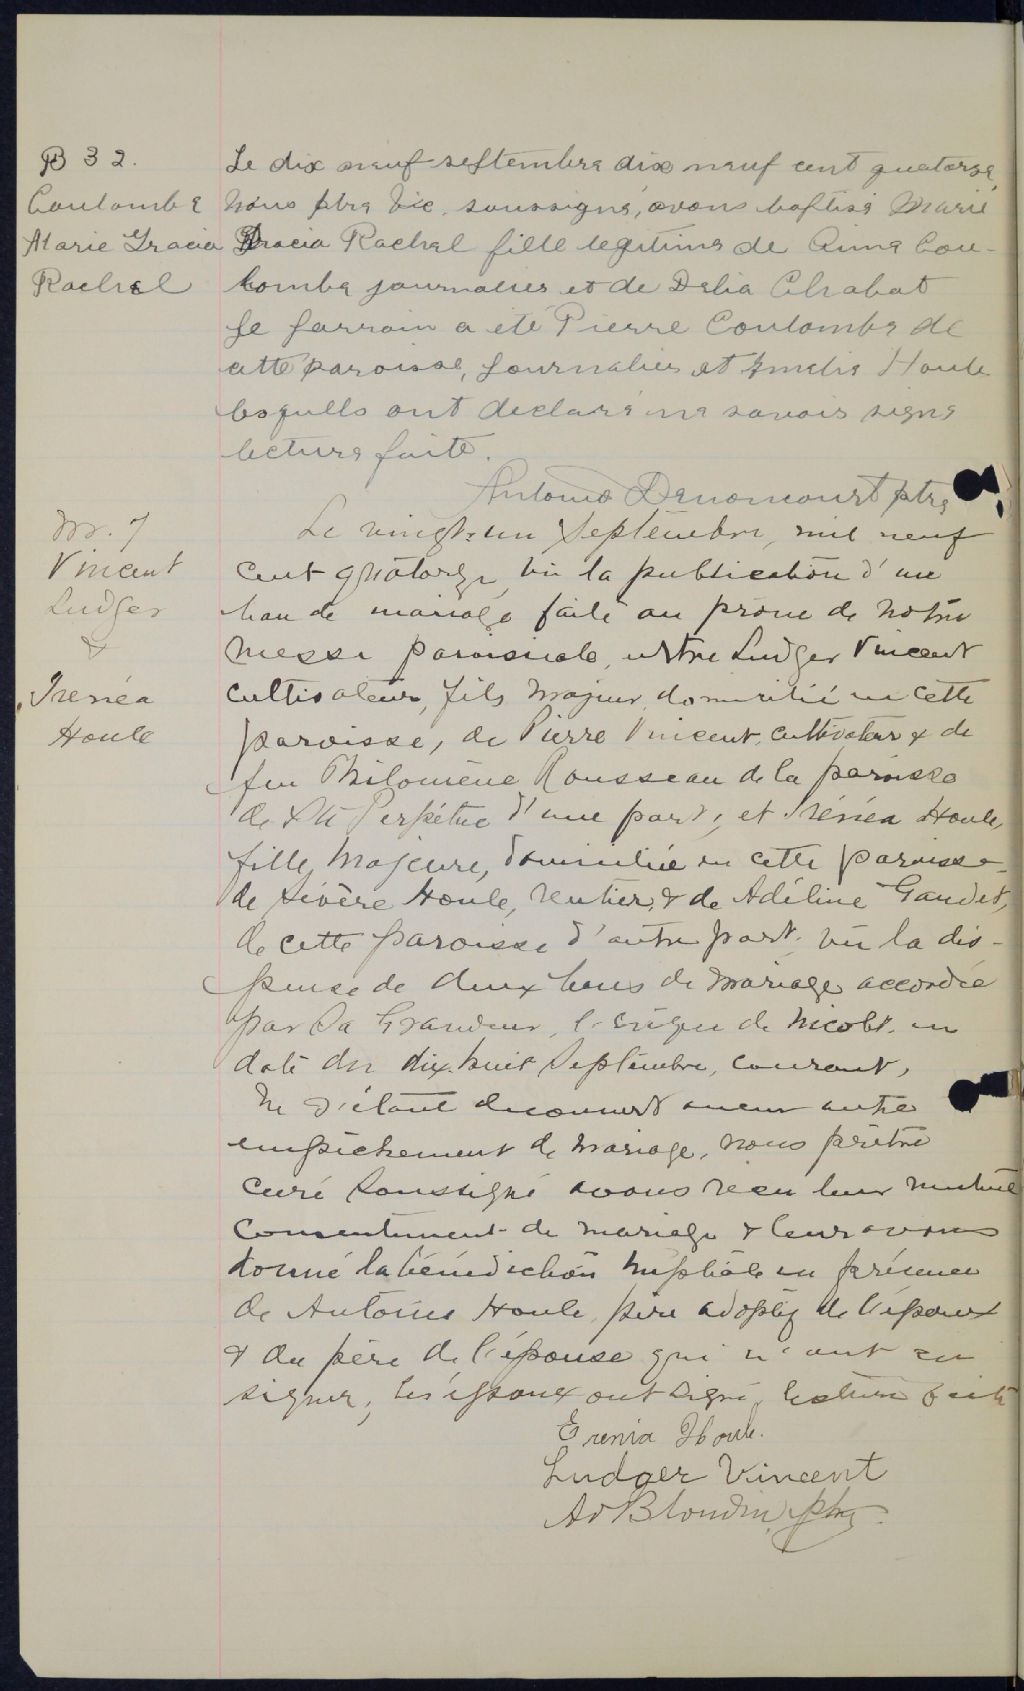 B 32.
Coulombe
Marie Gracia
Rachel
Le dix neuf septembre dix neuf cent quatorze,
Nous ptre Vic. soussigné, avons baptisé Marie
Gracia Rachel fille legitime de Aimé Cou-
lombe journalier et de Delia Chabot
Le parrain a été Pierre Coulombe de
cette paroisse, journalier et Amelia Houle
lesquells ont declaré ne savoir signe
lecture faite.
Antonio Denoncourt ptre
M. 7
Vincent
Ludger
&
Irenéa
Houle
Le vingt-un Septembre, mil neuf
cent quatorze, vu la publication d'un
ban de mariage faite au prône de notre
messe paroissiale, entre Ludger Vincent
cultivateur, fils majeur domicilié en cette
paroisse, de Pierre Vincent, cultivateur & de
feu Philomène Rousseau de la paroisse
de Ste Perpétue d'une part, et Irénéa Houle,
fille majeure, domiciliée en cette paroisse
de Sévère Houle, rentier, & de Adéline Gaudet,
de cette paroisse d'autre part, vu la dis-
pense de deux bans de mariage accordée
par Sa Grandeur, l'évêque de Nicolet, en
date du dix-huit Septembre, courant,
Ne s'étant decouvert aucun autre
empêchement de mariage, nous prêtre
curé soussigné avons reçu leur mutuel
consentement de mariage & leur avons
donné la bénédiction nuptiale en présence
de Antoine Houle père adoptif de l'époux
& du père de l'épouse qui n'ont su
signer, les époux ont signé, lecture faite
Erenia Houle.
Ludger Vincent
Ad Blondin, ptre